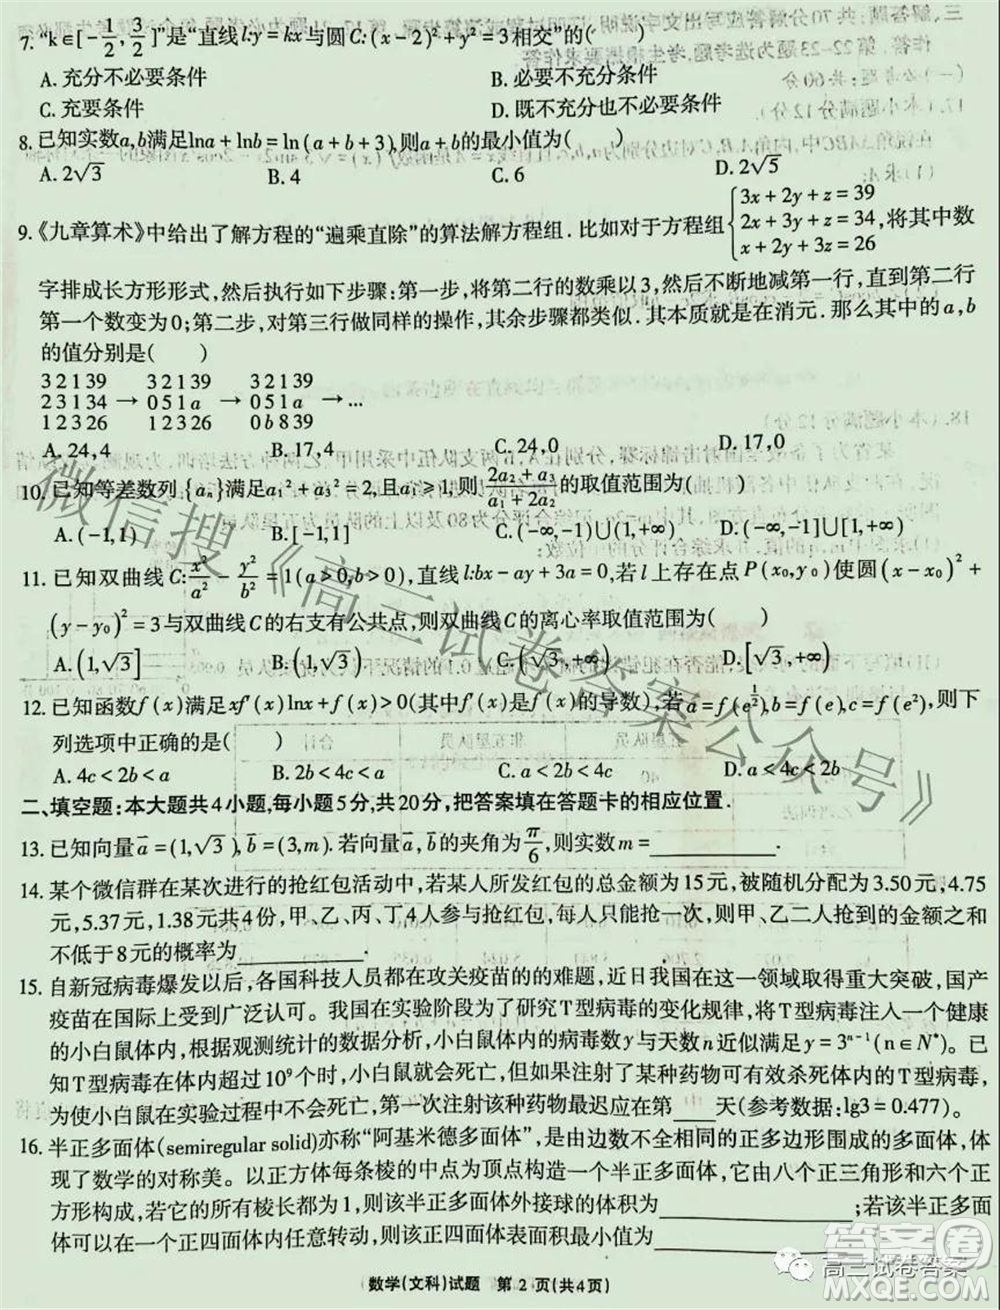 7. “k∈[-1/2, 3/2]”是“直线l:y=kx与圆C:(x-2)²+y²=3相交”的( )
A. 充分不必要条件 B. 必要不充分条件
C. 充要条件 D. 既不充分也不必要条件
8. 已知实数a,b满足lna+lnb=ln(a+b+3),则a+b的最小值为( )
A. 2√3 B. 4 C. 6 D. 2√5
9. 《九章算术》中给出了解方程的“遍乘直除”的算法解方程组. 比如对于方程组{3x+2y+z=39 2x+3y+z=34, x+2y+3z=26 将其中数
字排成长方形形式,然后执行如下步骤:第一步,将第二行的数乘以3,然后不断地减第一行,直到第二行
第一个数变为0;第二步,对第三行做同样的操作,其余步骤都类似. 其本质就是在消元. 那么其中a,b
的值分别是( )
3 2 1 39 3 2 1 39 3 2 1 39
2 3 1 34 → 0 5 1 a → 0 5 1 a → …
1 2 3 26 1 2 3 26 0 b 8 39
A. 24,4 B. 17,4 C. 24,0 D. 17,0
10. 已知等差数列{aₙ}满足a₁²+a₃²=2,且a₁≥1,则(2a₂+a₃)/(a₁+2a₂)的取值范围为( )
A. (-1,1) B. [-1,1] C. (-∞,-1)∪(1,+∞) D. (-∞,-1]∪[1,+∞)
11. 已知双曲线C:x²/a²-y²/b²=1(a>0,b>0),直线l:bx-ay+3a=0,若l上存在点P(x₀,y₀)使圆(x-x₀)²+
(y-y₀)²=3与双曲线C的右支有公共点,则双曲线C的离心率取值范围为( )
A. (1,√3] B. (1,√3) C. (√3,+∞) D. [√3,+∞)
12. 已知函数f(x)满足xf′(x)lnx+f(x)>0(其中f′(x)是f(x)的导数),若a=f(e^(1/2)),b=f(e),c=f(e²),则下
列选项中正确的是( )
A. 4c<2b<a B. 2b<4c<a C. a<2b<4c D. a<4c<2b
二、填空题:本大题共4小题,每小题5分,共20分,把答案填在答题卡的相应位置.
13. 已知向量a=(1,√3),b=(3,m). 若向量a,b的夹角为π/6,则实数m=
14. 某个微信群在某次进行的抢红包活动中,若某人所发红包的总金额为15元,被随机分配为3.50元,4.75
元,5.37元,1.38元共4份,甲、乙、丙、丁4人参与抢红包,每人只能抢一次,则甲、乙二人抢到的金额之和
不低于8元的概率为 .
15. 自新冠病毒爆发以后,各国科技人员都在攻关疫苗的的难题,近日我国在这一领域取得重大突破,国产
疫苗在国际上受到广泛认可。我国在实验阶段为了研究T型病毒的变化规律,将T型病毒注入一个健康
的小白鼠体内,根据观测统计的数据分析,小白鼠体内的病毒数y与天数n近似满足y=3ⁿ⁻¹(n∈N*)。已
知T型病毒在体内超过10⁹个时,小白鼠就会死亡,但如果注射了某种药物可有效杀死体内的T型病毒,
为使小白鼠在实验过程中不会死亡,第一次注射该种药物最迟应在第 天(参考数据:lg3=0.477)。
16. 半正多面体(semiregular solid)亦称“阿基米德多面体”,是由边数不全相同的正多边形围成的多面体,体
现了数学的对称美。以正方体每条棱的中点为顶点构造一个半正多面体,它由八个正三角形和六个正
方形构成,若它的所有棱长都为1,则该半正多面体外接球的体积为 ;若该半正多面
体可以在一个正四面体内任意转动,则该正四面体表面积最小值为
数学(文科)试题 第2页(共4页)
微信搜《高三试卷答案公众号》
答案圈
高三试卷答案
MXQE.COM